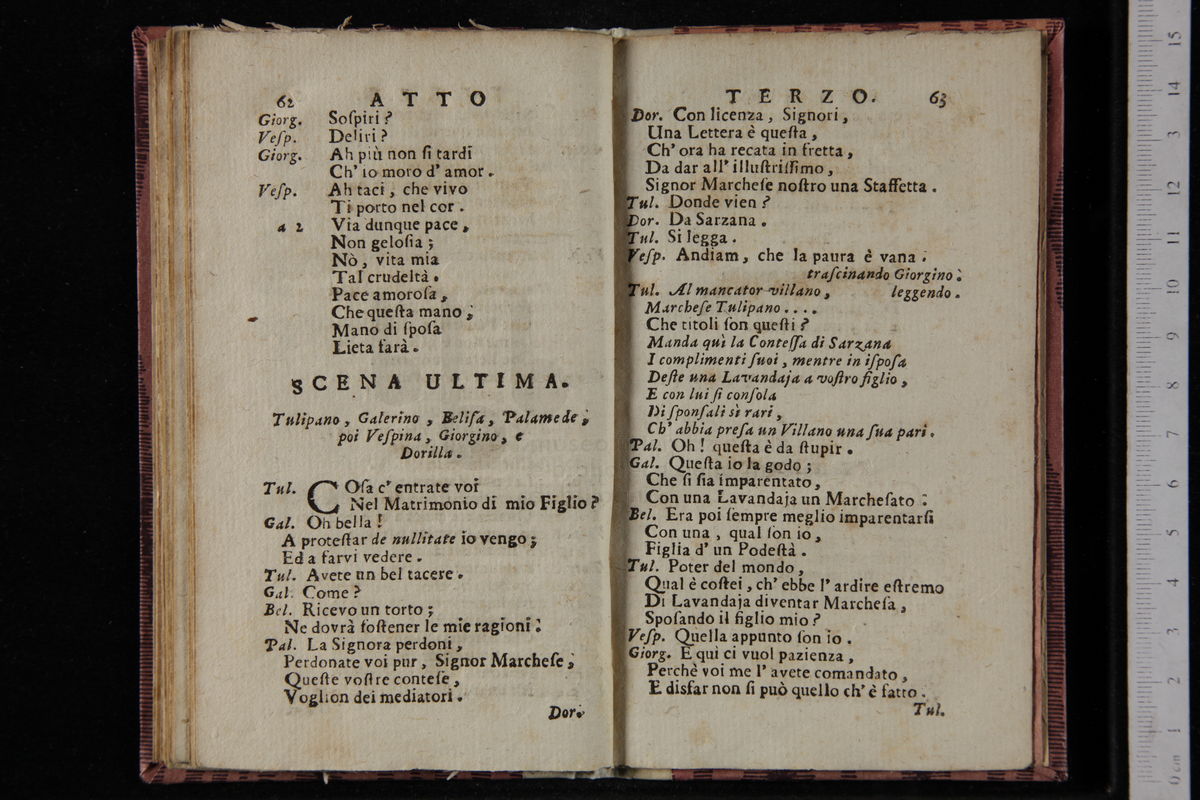 62 ATTO
Giorg. Soſpiri?
Veſp. Deliri?
Giorg. Ah più non ſi tardi
Ch' io moro d' amor.
Veſp. Ah taci, che vivo
Ti porto nel cor.
a 2 Via dunque pace,
Non geloſia;
Nò, vita mia
Tal crudeltà.
Pace amoroſa,
Che queſta mano;
Mano di ſpoſa
Lieta ſarà.
SCENA ULTIMA.
Tulipano, Galerino, Beliſa, Palamede;
poi Veſpina, Giorgino, e
Dorilla.
Tul. COſa c' entrate voi
Nel Matrimonio di mio Figlio?
Gal. Oh bella!
A proteſtar de nullitate io vengo;
Ed a farvi vedere.
Tul. Avete un bel tacere.
Gal. Come?
Bel. Ricevo un torto;
Ne dovrà ſoſtener le mie ragioni.
Pal. La Signora perdoni,
Perdonate voi pur, Signor Marcheſe,
Queſte voſtre conteſe,
Voglion dei mediatori.
Dor.
TERZO. 63
Dor. Con licenza, Signori,
Una Lettera è queſta,
Ch' ora ha recata in fretta,
Da dar all' illuſtriſſimo,
Signor Marcheſe noſtro una Staffetta.
Tul. Donde vien?
Dor. Da Sarzana.
Tul. Si legga.
Veſp. Andiam, che la paura è vana.
traſcinando Giorgino.
Tul. Al mancator villano, leggendo.
Marcheſe Tulipano....
Che titoli ſon queſti?
Manda quì la Conteſſa di Sarzana
I complimenti ſuoi, mentre in iſpoſa
Deſte una Lavandaja a voſtro figlio,
E con lui ſi conſola
Di ſponſali sì rari,
Ch' abbia preſa un Villano una ſua pari.
Pal. Oh! queſta è da ſtupir.
Gal. Queſta io la godo;
Che ſi ſia imparentato,
Con una Lavandaja un Marcheſato.
Bel. Era poi ſempre meglio imparentarſi
Con una, qual ſon io,
Figlia d' un Podeſtà.
Tul. Poter del mondo,
Qual è coſtei, ch' ebbe l' ardire eſtremo
Di Lavandaja diventar Marcheſa,
Spoſando il figlio mio?
Veſp. Quella appunto ſon io.
Giorg. E quì ci vuol pazienza,
Perchè voi me l' avete comandato,
E disfar non ſi può quello ch' è fatto.
Tul.
0 cm 1 2 3 4 5 6 7 8 9 10 11 12 13 14 15